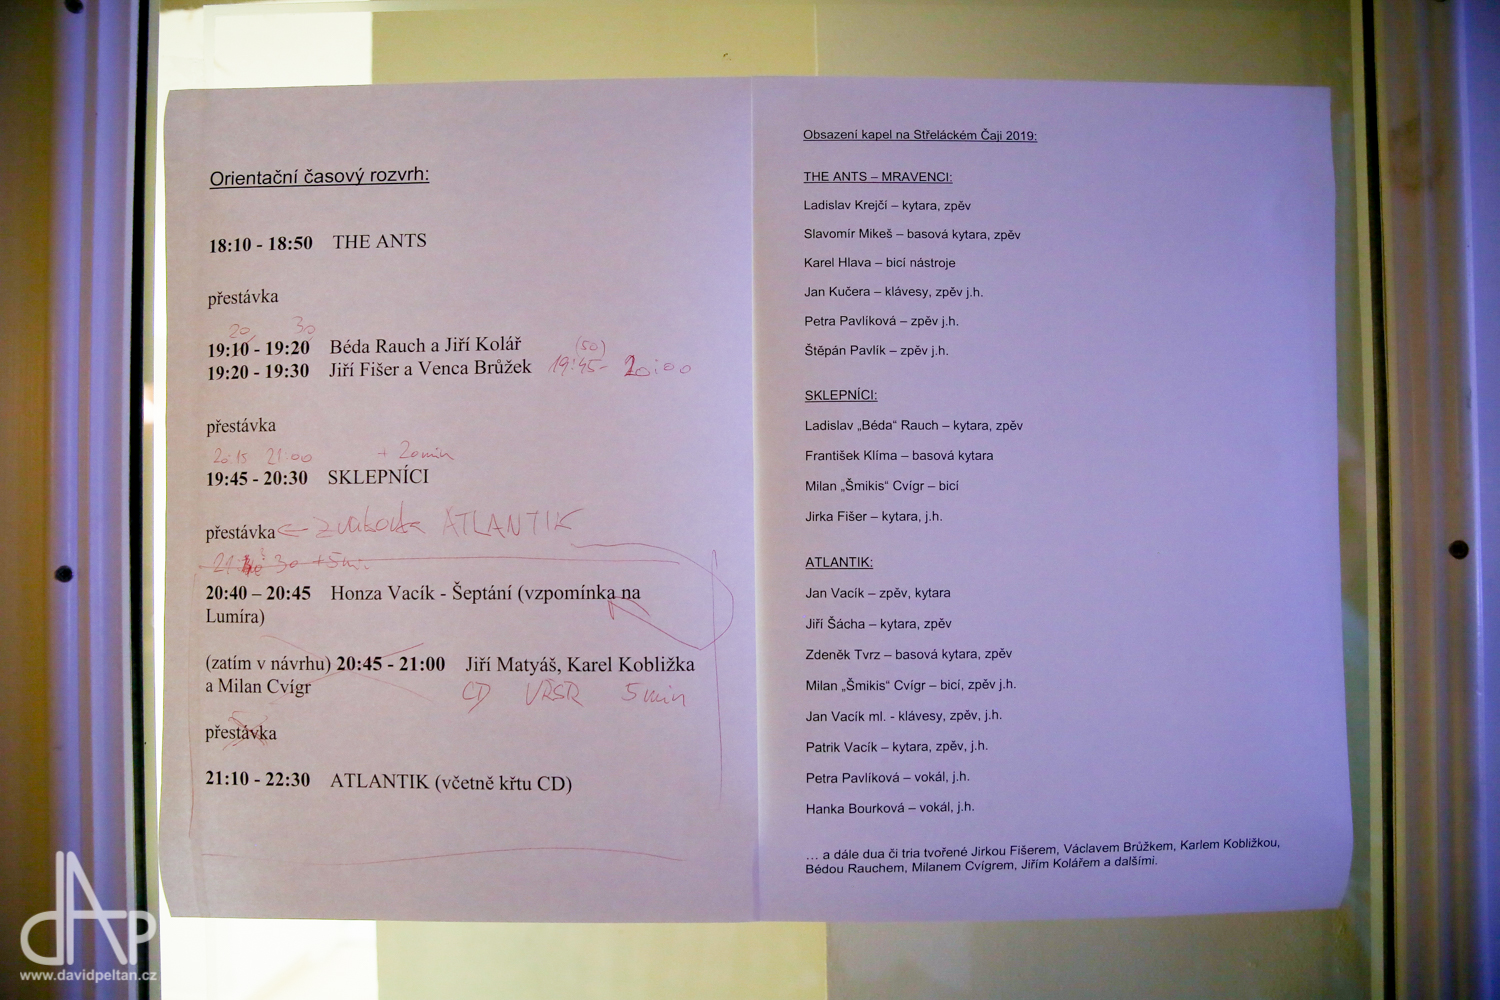 Orientační časový rozvrh:
18:10 - 18:50 THE ANTS
přestávka
20 30
19:10 - 19:20 Béda Rauch a Jiří Kolář
(50)
19:20 - 19:30 Jiří Fišer a Venca Brůžek 19:45- 20:00
přestávka
20:15 21:00 + 20min
19:45 - 20:30 SKLEPNÍCI
přestávka ← zvukovka ATLANTIK
30 +5min
20:40 – 20:45 Honza Vacík - Šeptání (vzpomínka na
Lumíra)
(zatím v návrhu) 20:45 - 21:00 Jiří Matyáš, Karel Kobližka
a Milan Cvígr CD VŘSR 5min
přestávka
21:10 - 22:30 ATLANTIK (včetně křtu CD)
Obsazení kapel na Střeláckém Čaji 2019:
THE ANTS – MRAVENCI:
Ladislav Krejčí – kytara, zpěv
Slavomír Mikeš – basová kytara, zpěv
Karel Hlava – bicí nástroje
Jan Kučera – klávesy, zpěv j.h.
Petra Pavlíková – zpěv j.h.
Štěpán Pavlík – zpěv j.h.
SKLEPNÍCI:
Ladislav „Béda“ Rauch – kytara, zpěv
František Klíma – basová kytara
Milan „Šmikis“ Cvígr – bicí
Jirka Fišer – kytara, j.h.
ATLANTIK:
Jan Vacík – zpěv, kytara
Jiří Šácha – kytara, zpěv
Zdeněk Tvrz – basová kytara, zpěv
Milan „Šmikis“ Cvígr – bicí, zpěv j.h.
Jan Vacík ml. - klávesy, zpěv, j.h.
Patrik Vacík – kytara, zpěv, j.h.
Petra Pavlíková – vokál, j.h.
Hanka Bourková – vokál, j.h.
… a dále dua či tria tvořené Jirkou Fišerem, Václavem Brůžkem, Karlem Kobližkou,
Bédou Rauchem, Milanem Cvígrem, Jiřím Kolářem a dalšími.
dAp
www.davidpeltan.cz